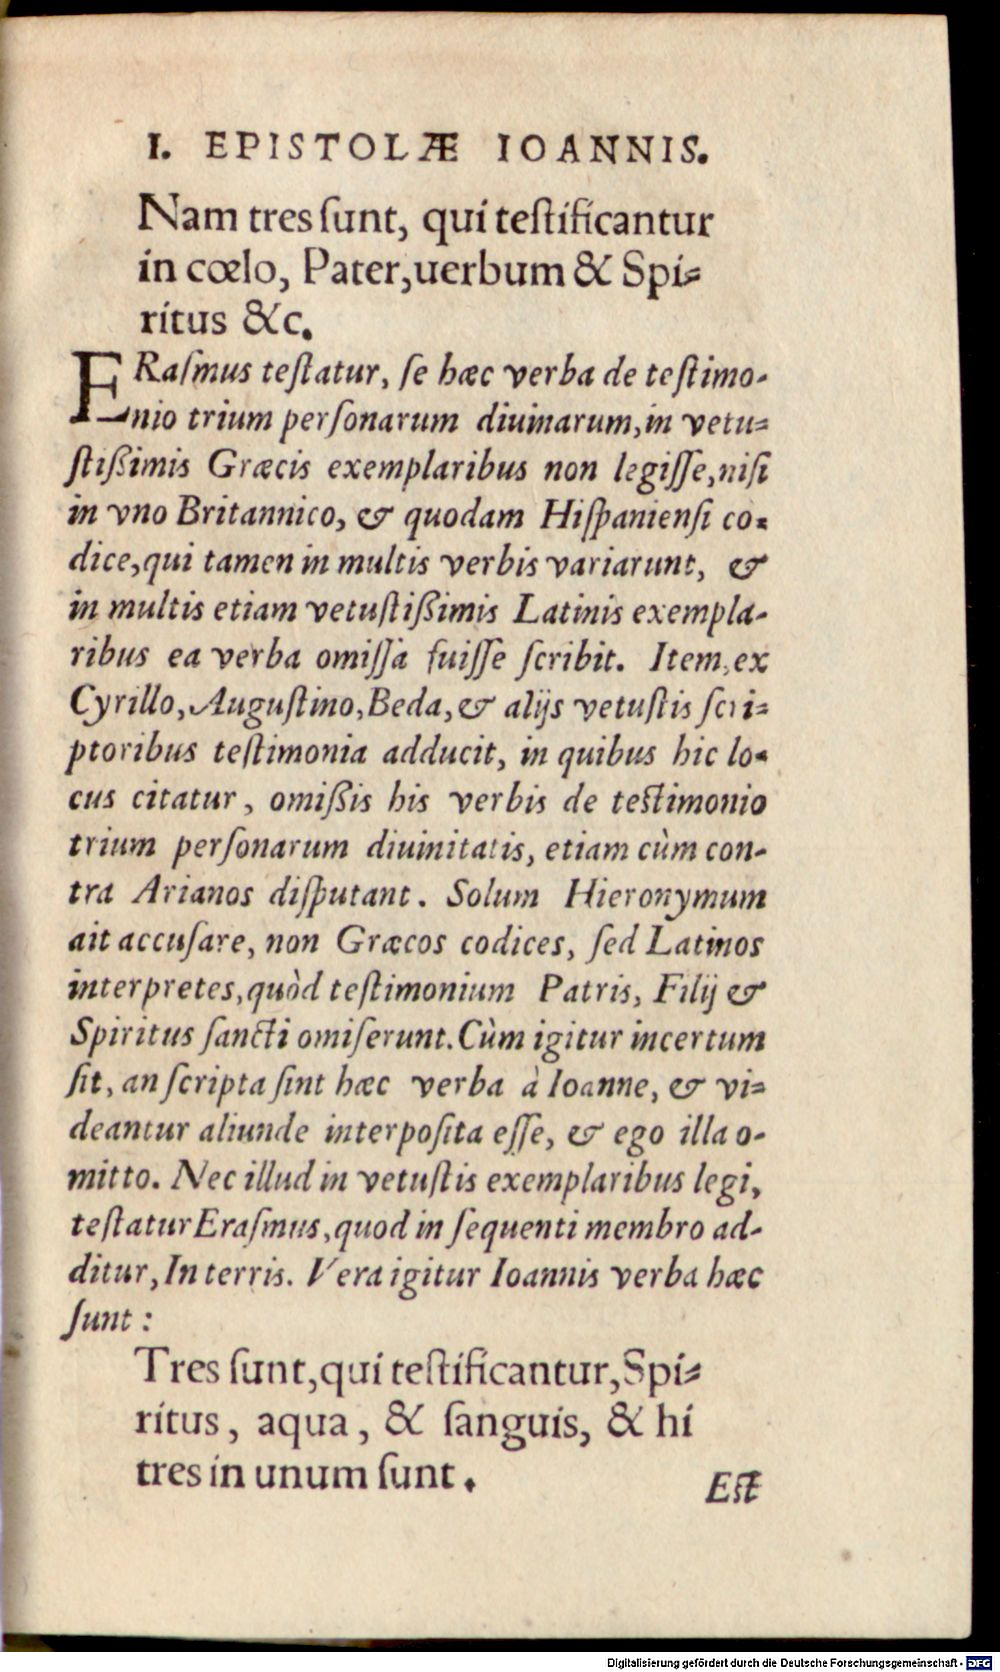 I. EPISTOLÆ IOANNIS.
Nam tres ſunt, qui teſtificantur
in cœlo, Pater, uerbum & Spi⸗
ritus &c.
ERaſmus teſtatur, ſe hæc verba de teſtimo-
nio trium perſonarum diuinarum, in vetu⸗
ſtißimis Græcis exemplaribus non legiſſe, niſi
in vno Britannico, & quodam Hiſpanienſi co⸗
dice, qui tamen in multis verbis variarunt, &
in multis etiam vetuſtißimis Latinis exempla-
ribus ea verba omiſſa fuiſſe ſcribit. Item, ex
Cyrillo, Auguſtino, Beda, & alijs vetuſtis ſcri⸗
ptoribus teſtimonia adducit, in quibus hic lo⸗
cus citatur, omißis his verbis de teſtimonio
trium perſonarum diuinitatis, etiam cùm con-
tra Arianos diſputant. Solum Hieronymum
ait accuſare, non Græcos codices, ſed Latinos
interpretes, quòd teſtimonium Patris, Filij &
Spiritus ſancti omiſerunt. Cùm igitur incertum
ſit, an ſcripta ſint hæc verba à Ioanne, & vi⸗
deantur aliunde interpoſita eſſe, & ego illa o-
mitto. Nec illud in vetuſtis exemplaribus legi,
teſtatur Eraſmus, quod in ſequenti membro ad-
ditur, In terris. Vera igitur Ioannis verba hæc
ſunt:
Tres ſunt, qui teſtificantur, Spi⸗
ritus, aqua, & ſanguis, & hi
tres in unum ſunt.
Eſt
Digitalisierung gefördert durch die Deutsche Forschungsgemeinschaft - DFG